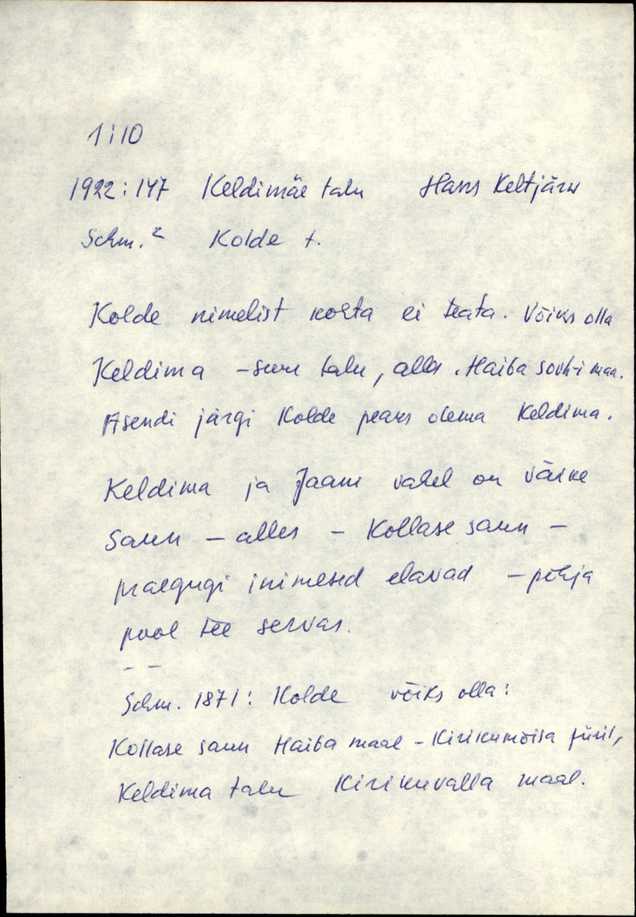 1:10
1922:147 Keldimäe talu Hans Keltjärv
Schm.² Kolde t.
Kolde nimelist kohta ei teata. Võiks olla
Keldima - suur talu, alles. Haiba sovh-i maa.
Asendi järgi Kolde peaks olema Keldima.
Keldima ja Jaani vahel on väike
saun - alles - Kollase saun -
praegugi inimesed elavad - põhja
pool tee servas.
- -
Schm. 1871: Kolde võiks olla:
Kollase saun Haiba maal - Kirikumõisa piiril,
Keldima talu Kirikuvalla maal.